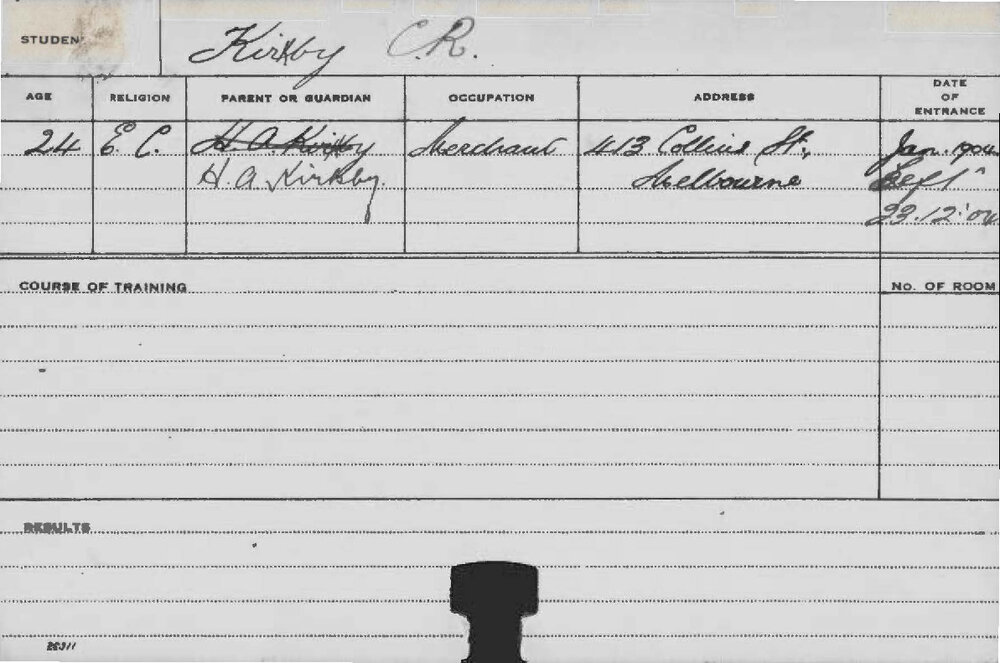 STUDENT Kirkby C.R.
AGE RELIGION PARENT OR GUARDIAN OCCUPATION ADDRESS DATE OF ENTRANCE
24 E. C. H. A. Kirkby Merchant 413 Collins St., Jan. 1904
H. A. Kirkby. Melbourne Left
23.12.'04
COURSE OF TRAINING No. OF ROOM
RESULTS